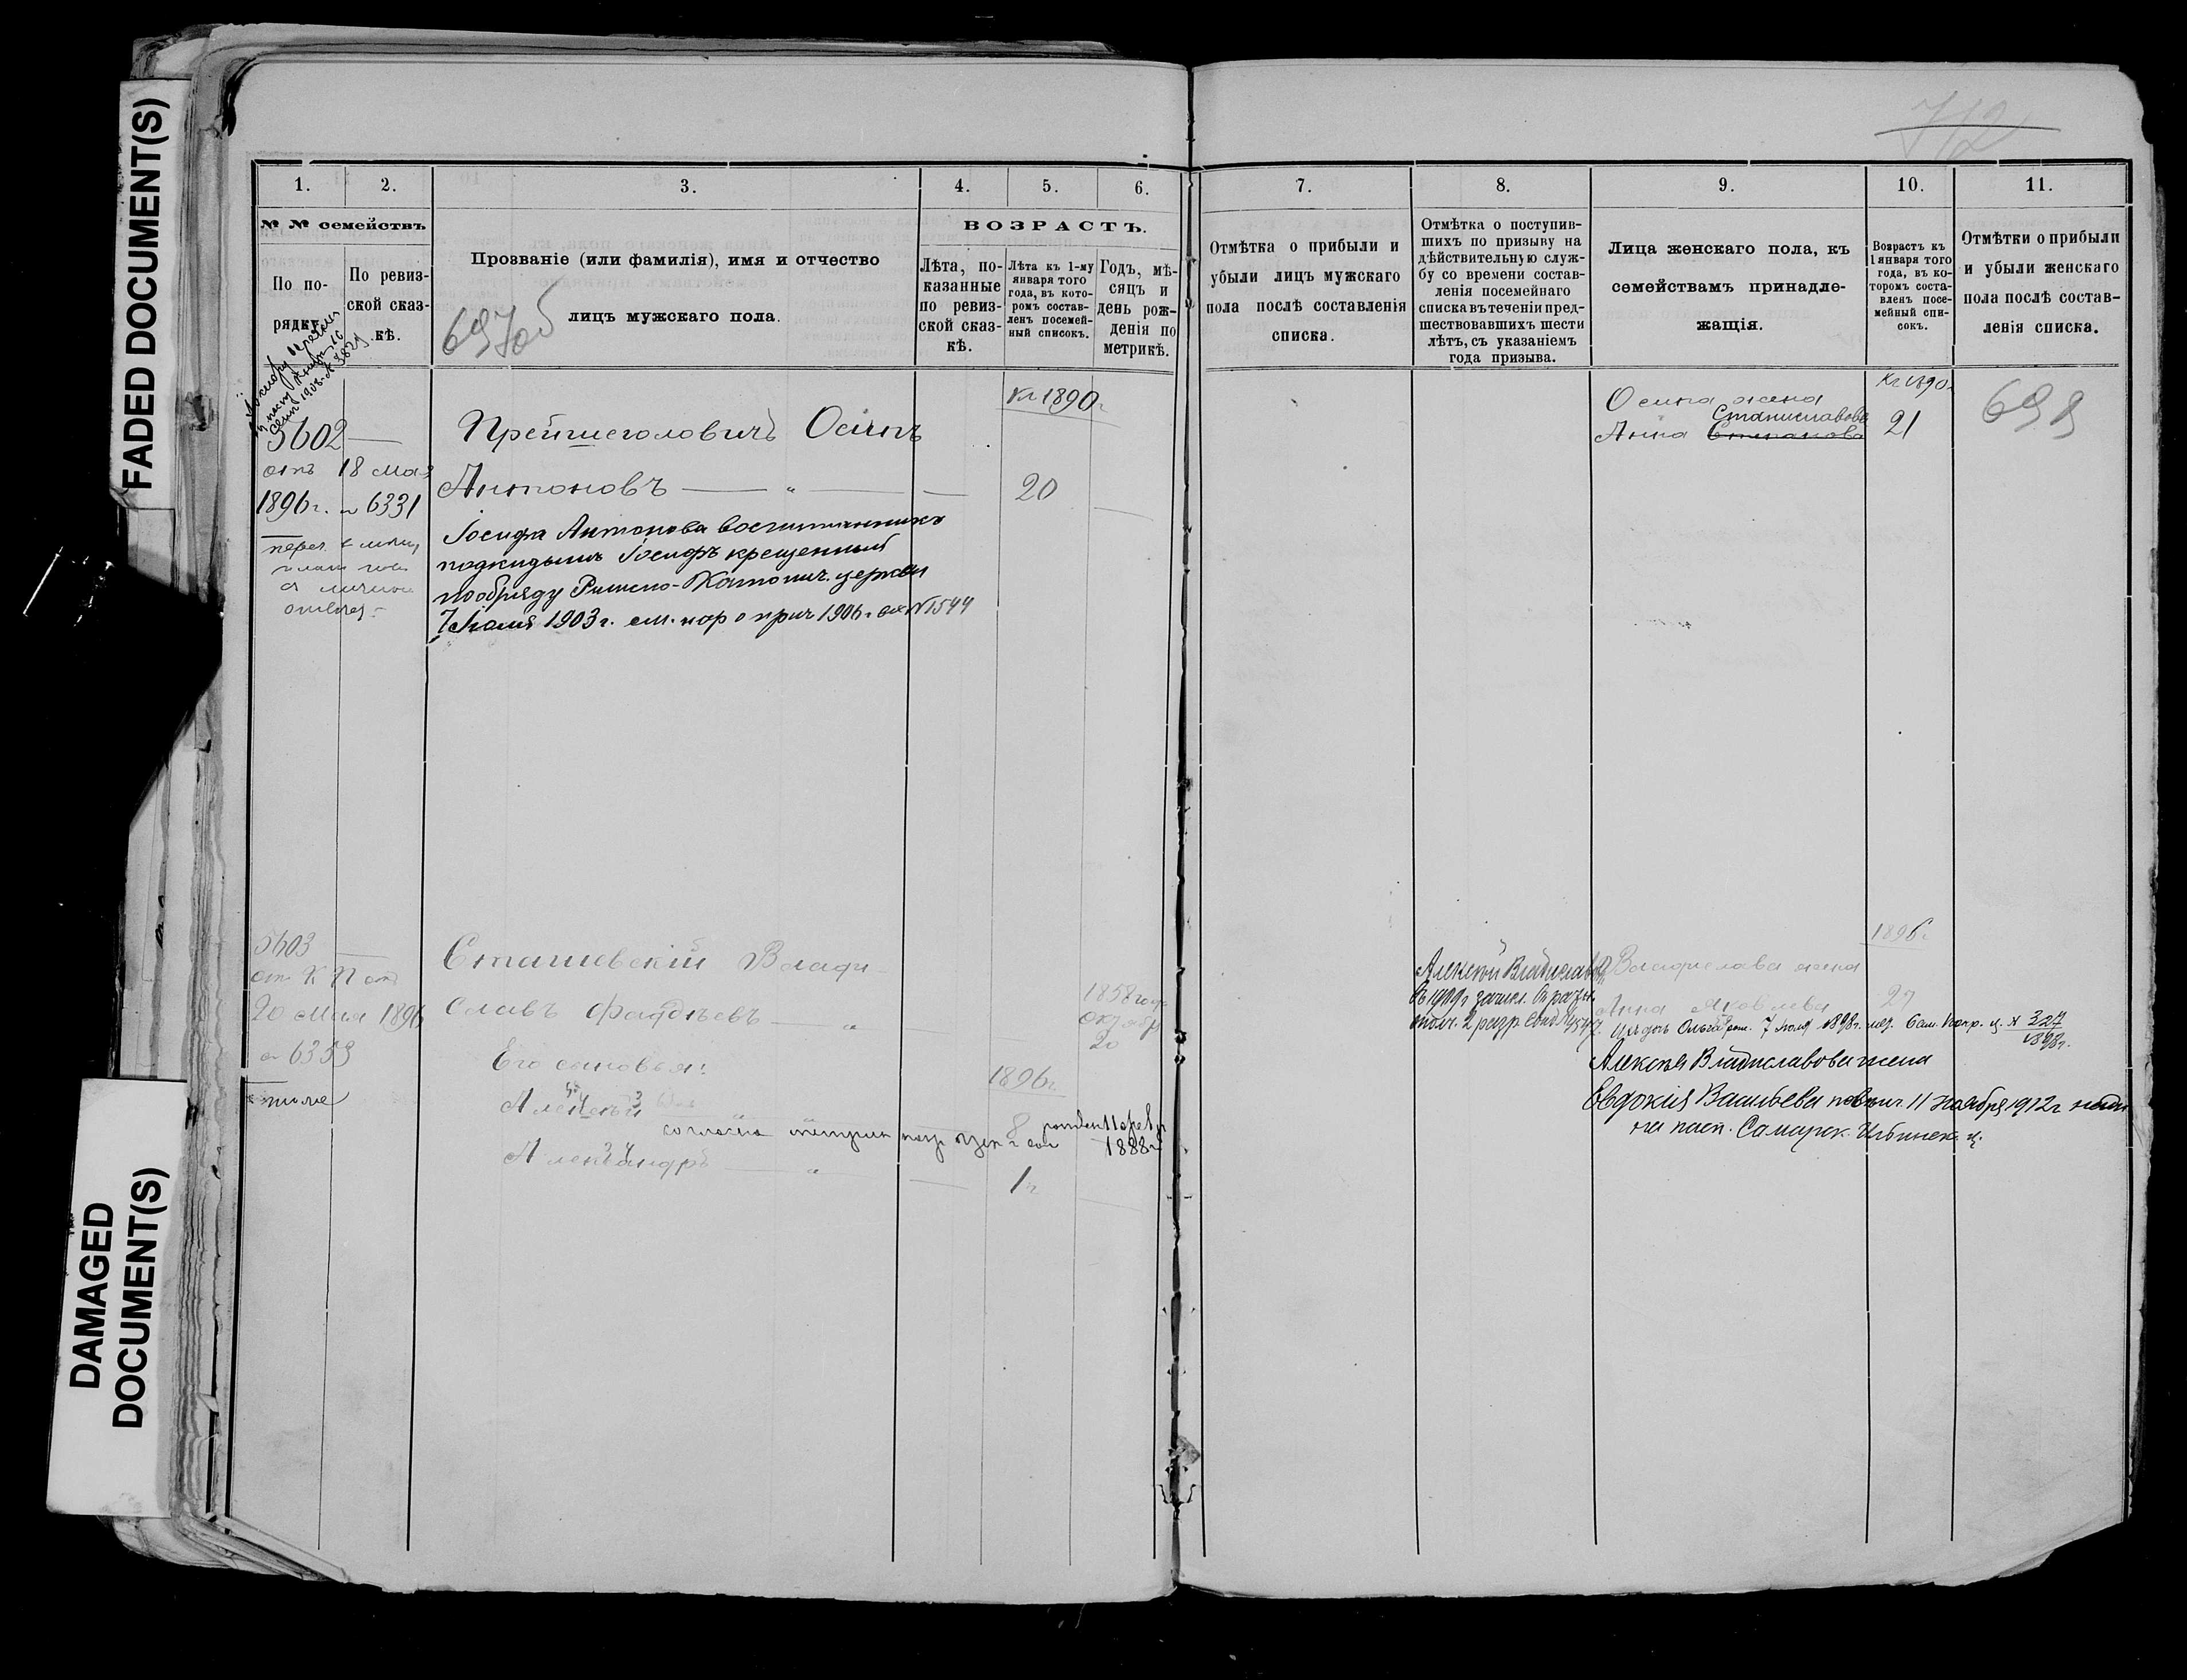 FADED DOCUMENT(S)
DAMAGED
DOCUMENT(S)
712
1.
2.
3.
4.
5.
6.
№ № семействъ
По по-
рядку.
По ревиз-
ской сказ-
кѣ.
Прозваніе (или фамилія), имя и отчество
лицъ мужскаго пола.
697об
ВОЗРАСТЪ.
Лѣта, по-
казанные
по ревиз-
ской сказ-
кѣ.
Лѣта къ 1-му
января того
года, въ кото-
ромъ состав-
ленъ посемей-
ный списокъ.
Годъ, мѣ-
сяцъ и
день рож-
денія по
метрикѣ.
1908 г. № 3829
5602 —
отъ 18 мая
1896 г. № 6331
Къ 1890 г.
Прейшеголовичъ Осипъ
Антоновъ — " —
20
Іосифа Антонова воспитанникъ
подкидышъ Іосифъ крещенный
по обряду Римско-Католич. церкви
7 Іюля 1903 г. см. кор о прич 1906 г. вх № 1544
5603 —
20 мая 1896
№ 6353
тоже
Сташевскій Влади-
славъ Фаддѣевъ — "
1858 года
20
Его сыновья:
1896 г.
Алексѣй — " "
8
согласно метрик
1888 г.
Александръ — "
1 г.
7.
8.
9.
10.
11.
Отмѣтка о прибыли и
убыли лицъ мужскаго
пола послѣ составленія
списка.
Отмѣтка о поступив-
шихъ по призыву на
дѣйствительную служ-
бу со времени состав-
ленія посемейнаго
списка въ теченіи пред-
шествовавшихъ шести
лѣтъ, съ указаніемъ
года призыва.
Лица женскаго пола, къ
семействамъ принадле-
жащія.
Возрастъ къ
1 января того
года, въ ко-
торомъ соста-
вленъ посе-
мейный спи-
сокъ.
Отмѣтки о прибыли
и убыли женскаго
пола послѣ состав-
ленія списка.
Къ 1890 г.
698
Осипа жена
Станиславова
Анна Степанова
21
1896 г.
Алексѣй Владиславовъ
въ 1909 г зачисл. въ ратн.
ополч. 2 разр.
Владислава жена
Анна Яковлева
27
Ихъ дочь Ольга рож. 7 Іюля 1898 г. № 327
1898 г.
Алексѣя Владиславова жена
Евдокія Васильева повѣнч. 11 Ноября 1912 г
на пасп. Самарск. Ильинск. ц.